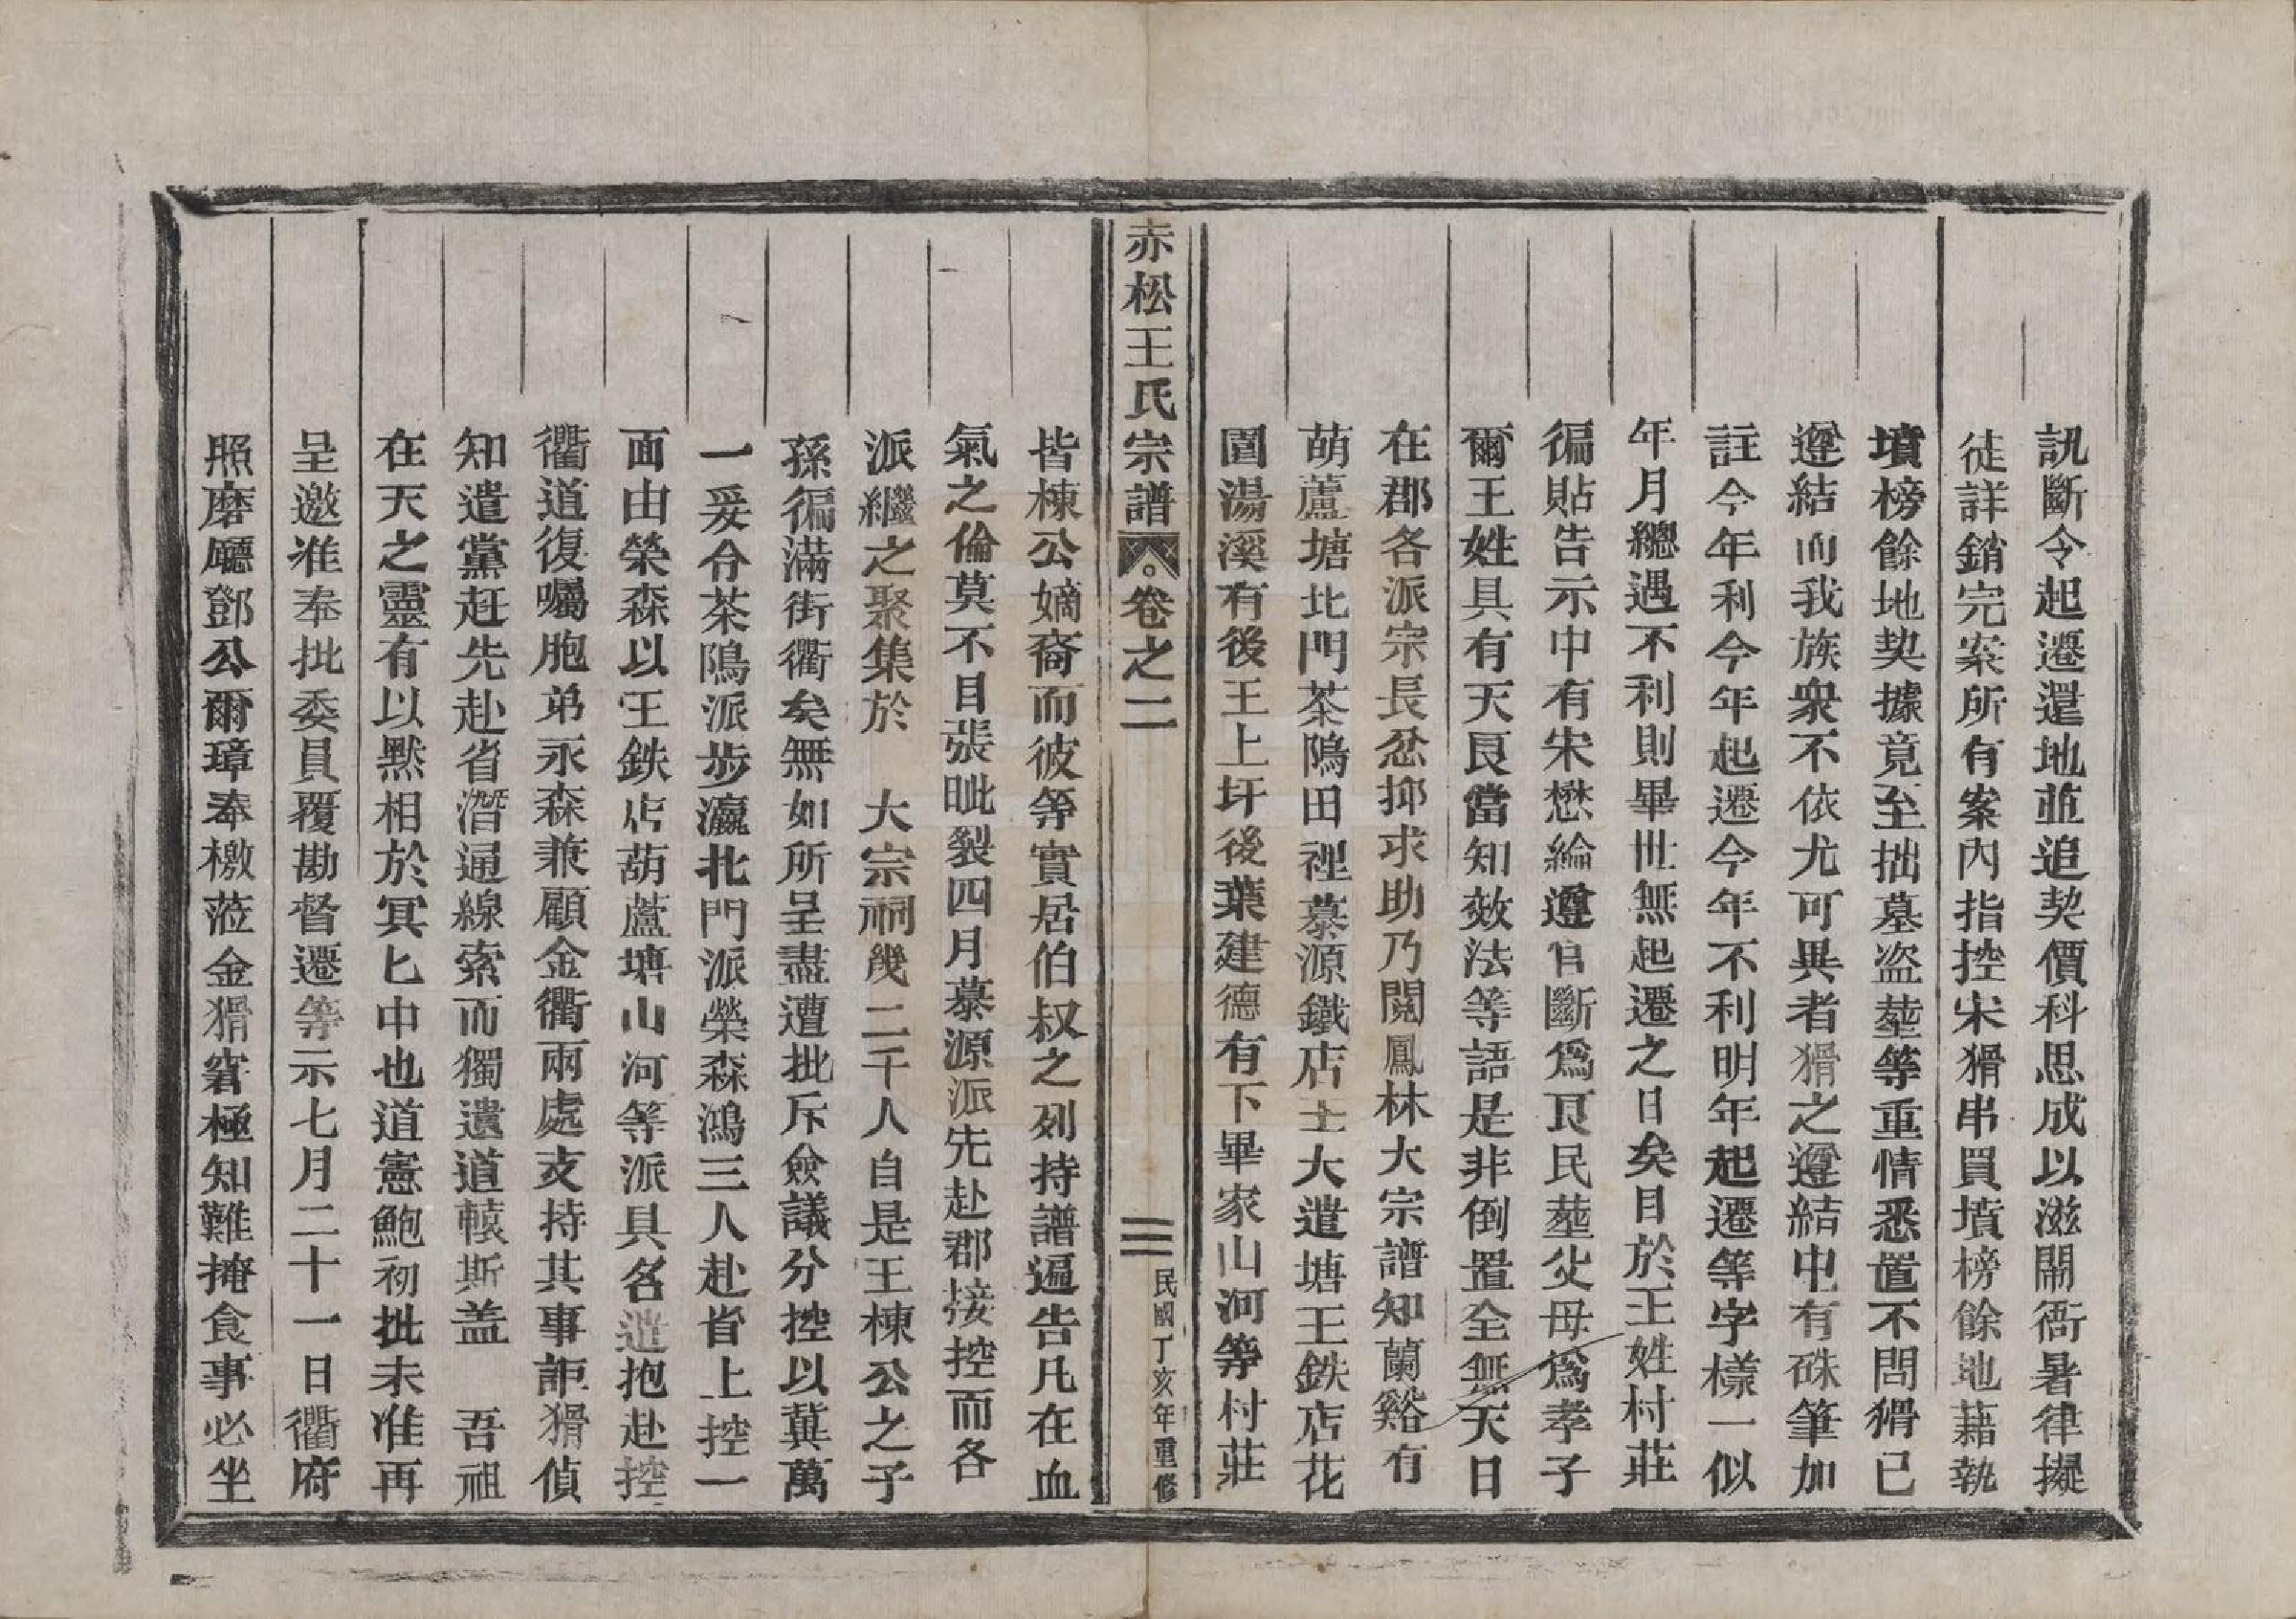 訊斷令起遷還地並追契價科思成以滋鬧衙署律擬
徒詳銷完案所有案內指控宋猾串買墳榜餘地藉執
墳榜餘地契據竟至拙墓盗塟等重情悉置不問猾已
遵結而我族衆不依尤可異者猾之遵結中有硃筆加
註今年利今年起遷今年不利明年起遷等字樣一似
年月總遇不利則畢世無起遷之日矣目於王姓村莊
徧貼告示中有宋懋綸遵官斷爲艮民塟父母爲孝子
爾王姓具有天艮當知效法等語是非倒置全無天日
在郡各派宗長忿抑求助乃閱鳳林大宗譜知蘭谿有
萌蘆塘北門茶隝田裡慕源鐵店王大遣塘王鉄店花
園湯溪有後王上圩後葉建德有下畢家山河等村莊
赤松王氏宗譜 卷之二 三 民國丁亥年重修
皆棟公嫡裔而彼等實居伯叔之列持譜遍告凡在血
氣之倫莫不目張眦裂四月慕源派先赴郡接控而各
派繼之聚集於 大宗祠幾二千人自是王棟公之子
孫徧滿街衢矣無如所呈盡遭批斥僉議分控以冀萬
一爰合茶隝派步瀛北門派榮森鴻三人赴省上控一
面由榮森以王鉄店葫蘆塘山河等派具名遣抱赴控
衢道復囑胞弟永森兼顧金衢兩處支持其事詎猾偵
知遣黨赶先赴省潛通線索而獨遺道轅斯盖 吾祖
在天之靈有以默相於冥匕中也道憲鮑初批未准再
呈邀准奉批委員覆勘督遷等示七月二十一日衢府
照磨廳鄧公爾璋奉檄蒞金猾窘極知難掩食事必坐